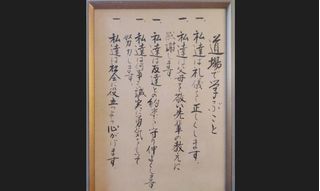 道場で学ぶこと
一 私達は礼儀を正しくします
一 私達は父母を敬い先輩の教えに
感謝します
一 私達は友達との約束を守り仲よくします
一 私達は何事も誠実に勇気をもって
努力します
一 私達は社会に役立つよう心がけます